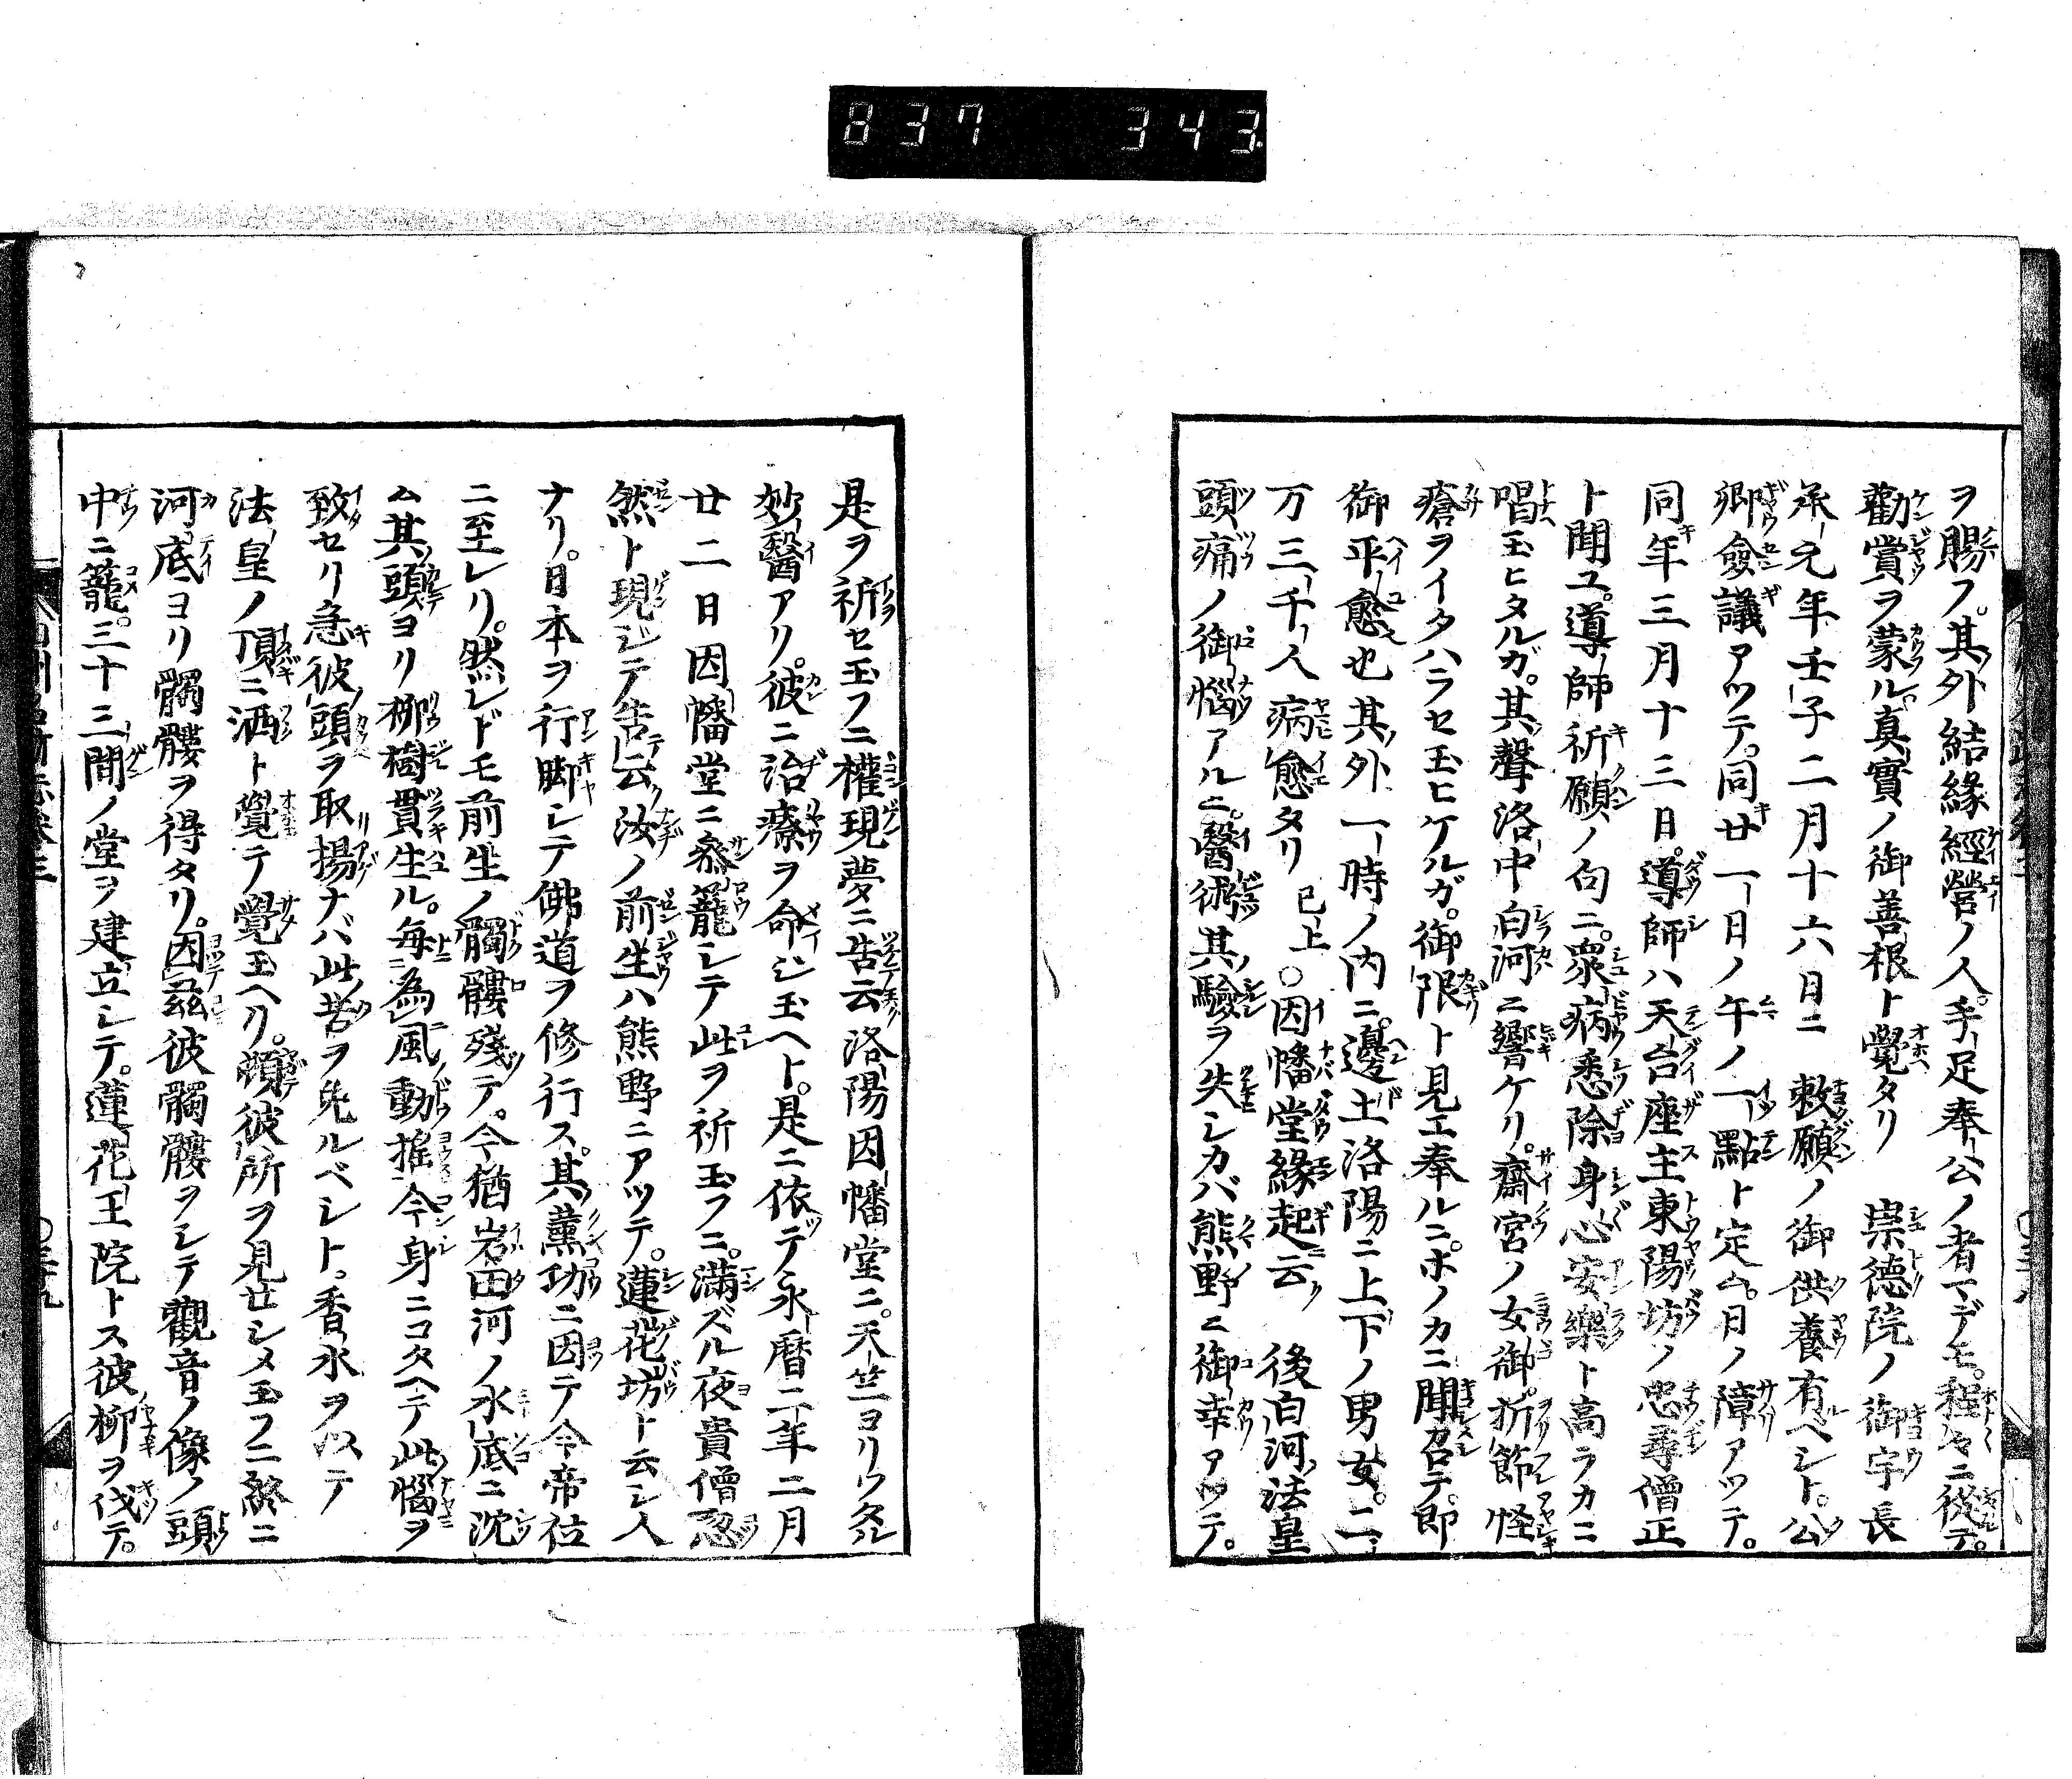 837 343
ヲ賜フ。其外結縁經營ノ人。手足奉公ノ者マデモ。程々ニ從テ。
勸賞ヲ蒙ル真實ノ御善根ト覺タリ 崇德院ノ御宇長
承元年壬子二月十六日ニ 敕願ノ御供養有ベシト。公
卿僉議アツテ。同廿一日ノ午ノ一點ト定ム。日ノ障アツテ。
同年三月十三日。導師ハ天台座主東陽坊ノ忠尋僧正
ト聞ユ。導師祈願ノ句ニ。衆病悉除身心安樂ト高ラカニ
唱玉ヒタルガ。其聲洛中白河ニ響ケリ。齋宮ノ女御。折節怪
瘡ヲイタハラセ玉ヒケルガ。御限ト見エ奉ルニ。ホノカニ聞召テ。即
御平愈也其外一時ノ内ニ。邊土洛陽ニ上下ノ男女。二
万三千人病愈タリ 已上 ○因幡堂緣起云 後白河法皇
頭痛ノ御惱アルニ。醫術其驗ヲ失シカバ熊野ニ御幸アツテ。
是ヲ祈セ玉フニ權現夢ニ告云洛陽因幡堂ニ。天竺ヨリワタル
妙醫アリ。彼ニ治療ヲ命ジ玉ヘト。是ニ依テ永暦二年二月
廿二日因幡堂ニ參籠シテ此ヲ祈玉フニ。滿ズル夜貴僧忽
然ト現ジテ告云汝ノ前生ハ熊野ニアツテ。蓮花坊ト云シ人
ナリ。日本ヲ行脚シテ佛道ヲ修行ス。其薰功ニ因テ今帝位
ニ至レリ。然レドモ前生ノ髑髏殘テ。今猶岩田河ノ水底ニ沈
ム其頭ヨリ栁樹貫生ル。毎為風動搖今身ニコタヘテ此惱ヲ
致セリ急彼頭ヲ取揚ナバ此苦ヲ免ルベシト。香水ヲ以テ
法皇ノ頂ニ洒ト覺テ覺玉ヘリ。頓彼所ヲ見セシメ玉フニ終ニ
河底ヨリ髑髏ヲ得タリ。因茲彼髑髏ヲシテ觀音ノ像ノ頭
中ニ籠。三十三間ノ堂ヲ建立シテ。蓮花王院トス彼柳ヲ伐テ。